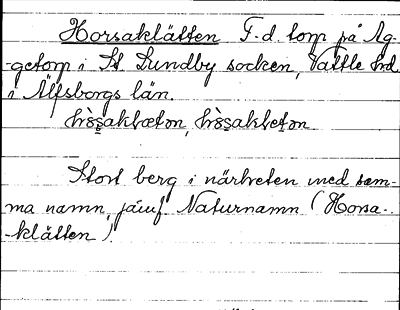 Horsaklätten F.d. torp på Ag-
-getorp i St. Lundby socken, Vättle hd
i Älfsborgs län.
Stort berg i närheten med sam-
ma namn, jämf Naturnamn (Horsa-
-klätten).